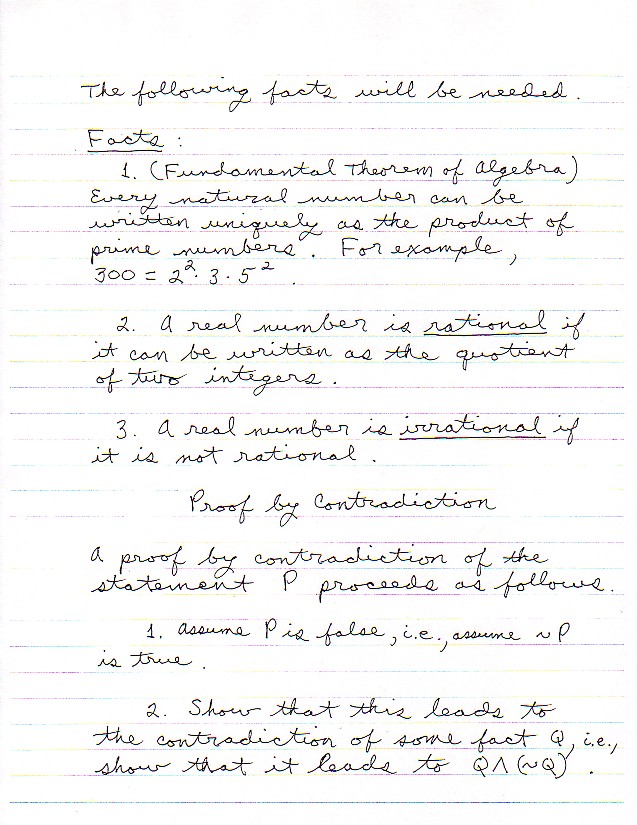 The following facts will be needed.
Facts :
1. (Fundamental Theorem of Algebra)
Every natural number can be
written uniquely as the product of
prime numbers. For example,
300 = 2². 3 · 5².
2. A real number is rational if
it can be written as the quotient
of two integers.
3. A real number is irrational if
it is not rational.
Proof by Contradiction
A proof by contradiction of the
statement P proceeds as follows.
1. Assume P is false, i.e., assume ~P
is true.
2. Show that this leads to
the contradiction of some fact Q, i.e.,
show that it leads to Q∧(~Q).